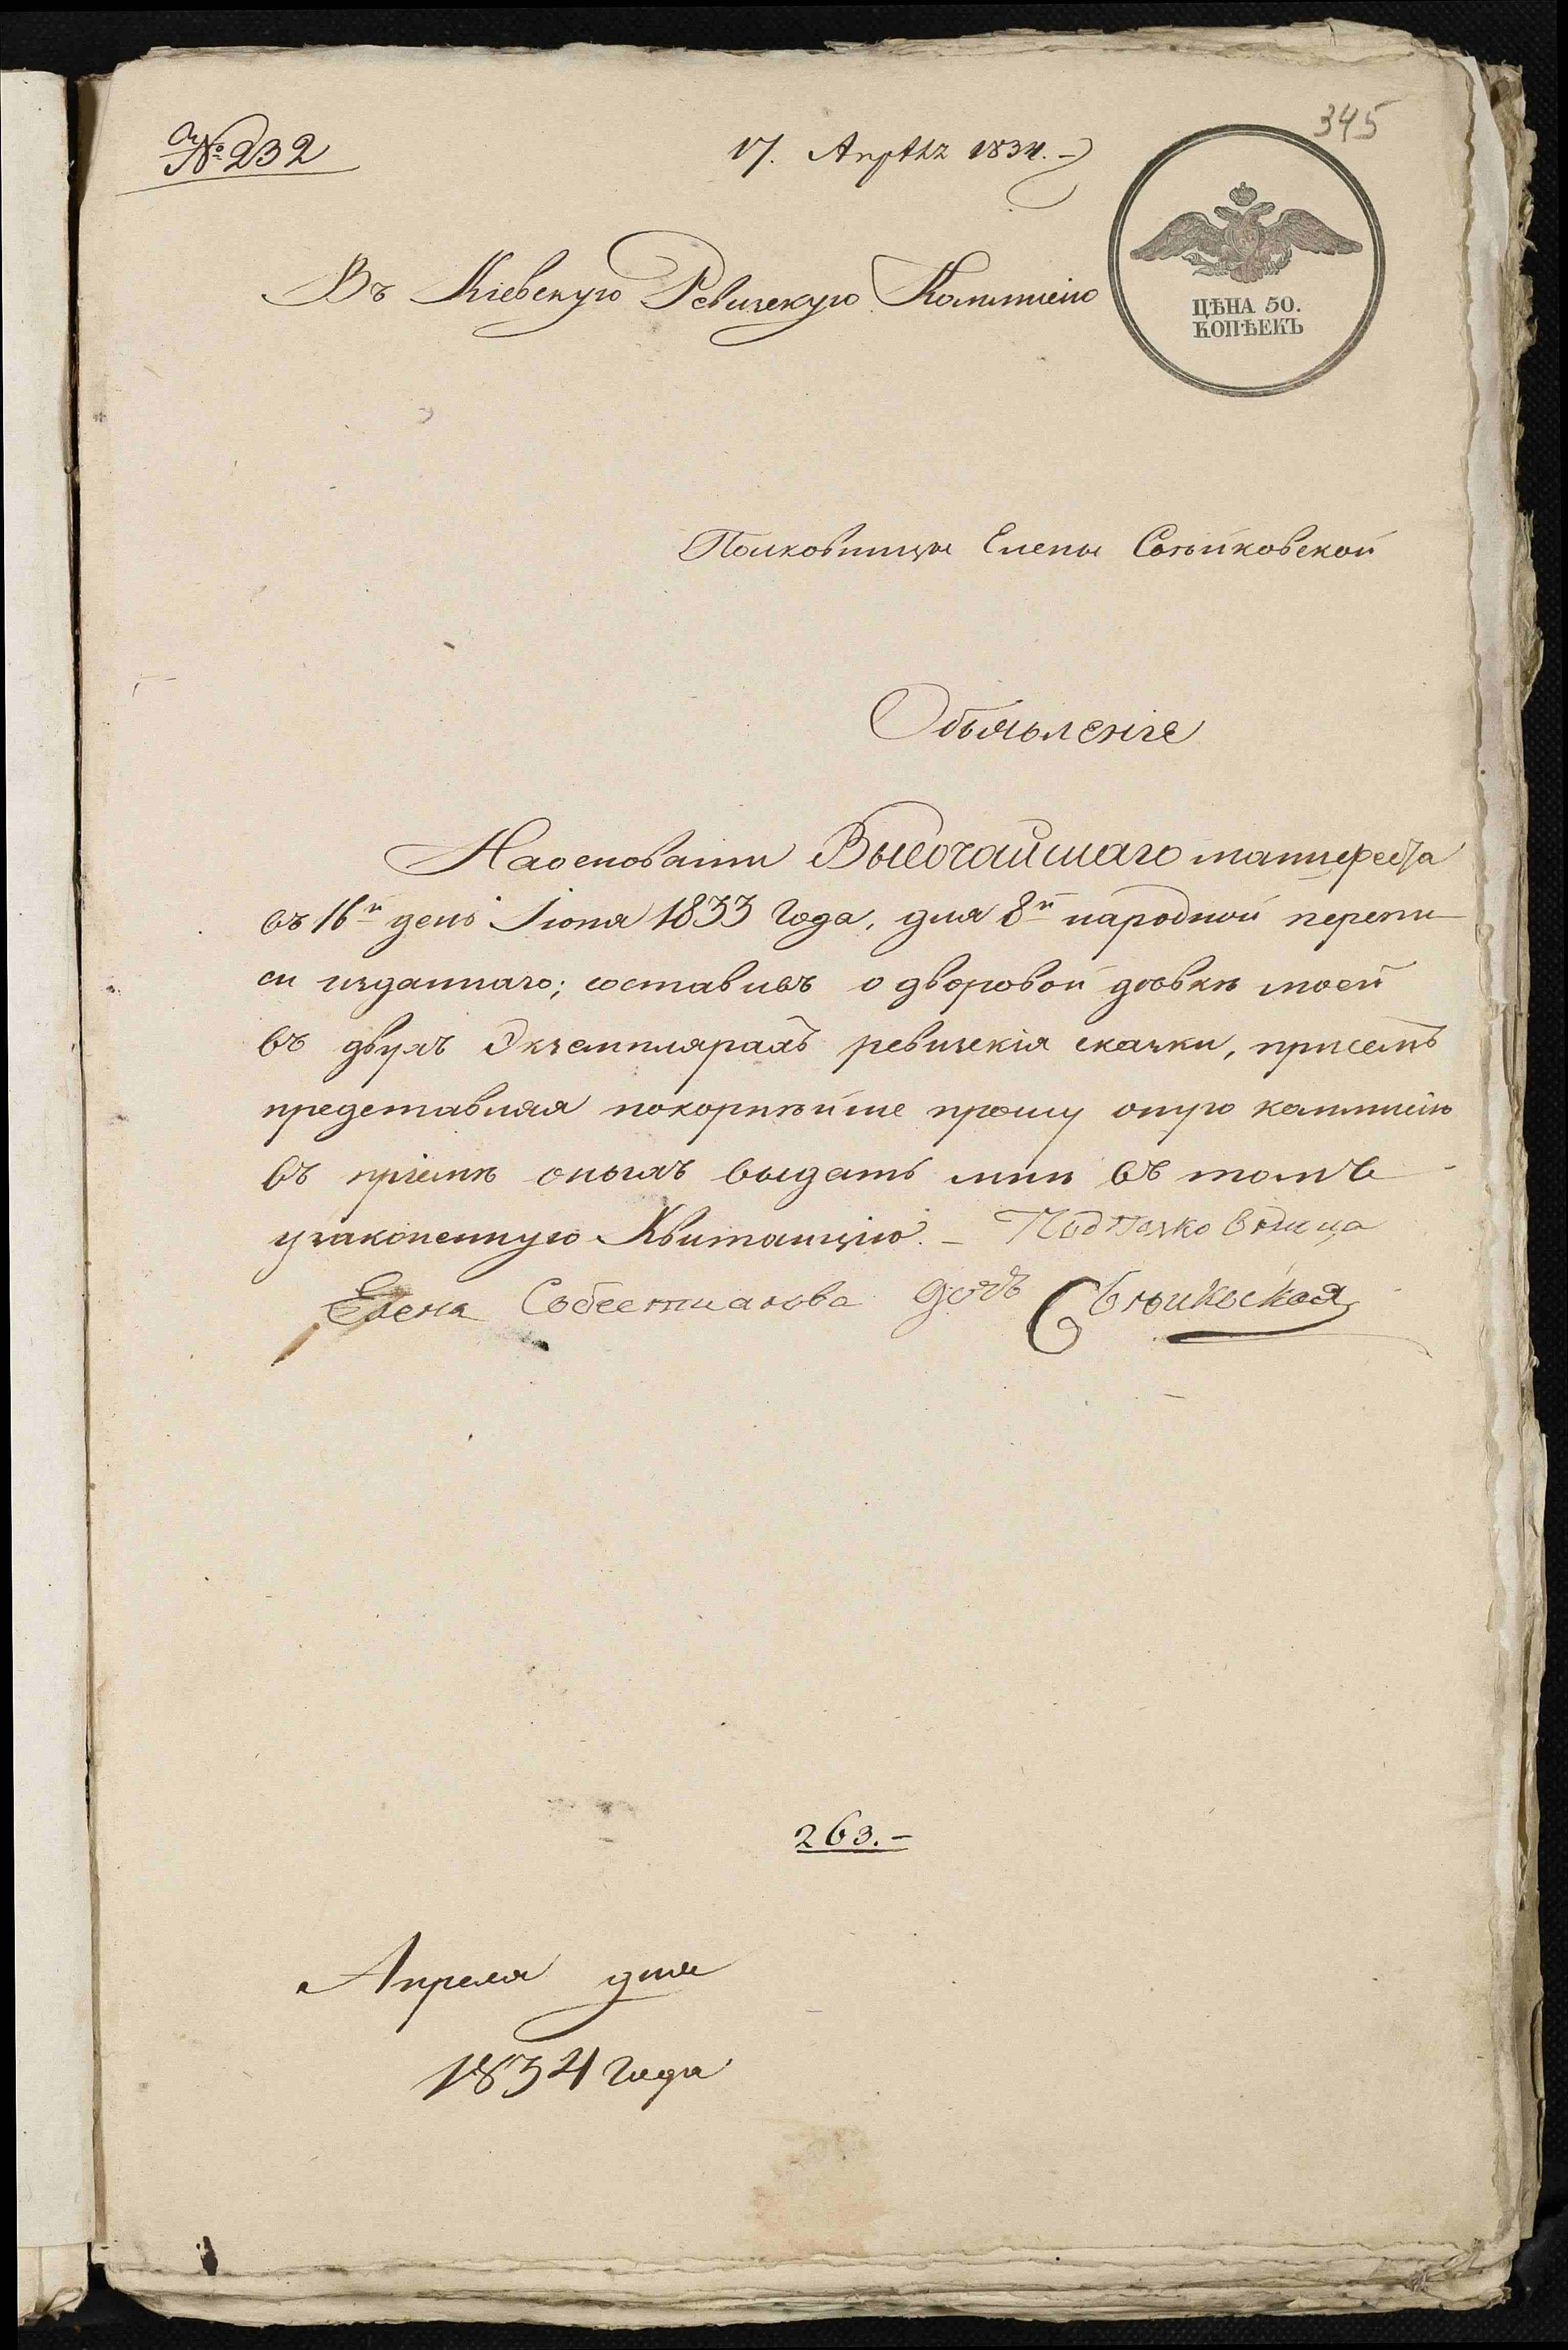 345
№ 232
17. Апрѣля 1834.
ЦѢНА 50.
КОПѢЕКЪ
Въ Кіевскую Ревизскую Коммисію
Полковницы Елены
Объявленіе
На основаніи Высочайшаго манифеста
въ 16й день Іюня 1833 года, для 8й народной перепи-
си изданнаго; составивъ о дворовой дѣвкѣ моей
въ двухъ Экземплярахъ ревизскія сказки, присемъ
представляя покорнѣйше прошу оную коммисію
въ пріемѣ оныхъ выдать мнѣ въ томъ
узаконенную Квитанцію. – Подполковница
Елена дочь
263.–
Апреля дня
1834 года